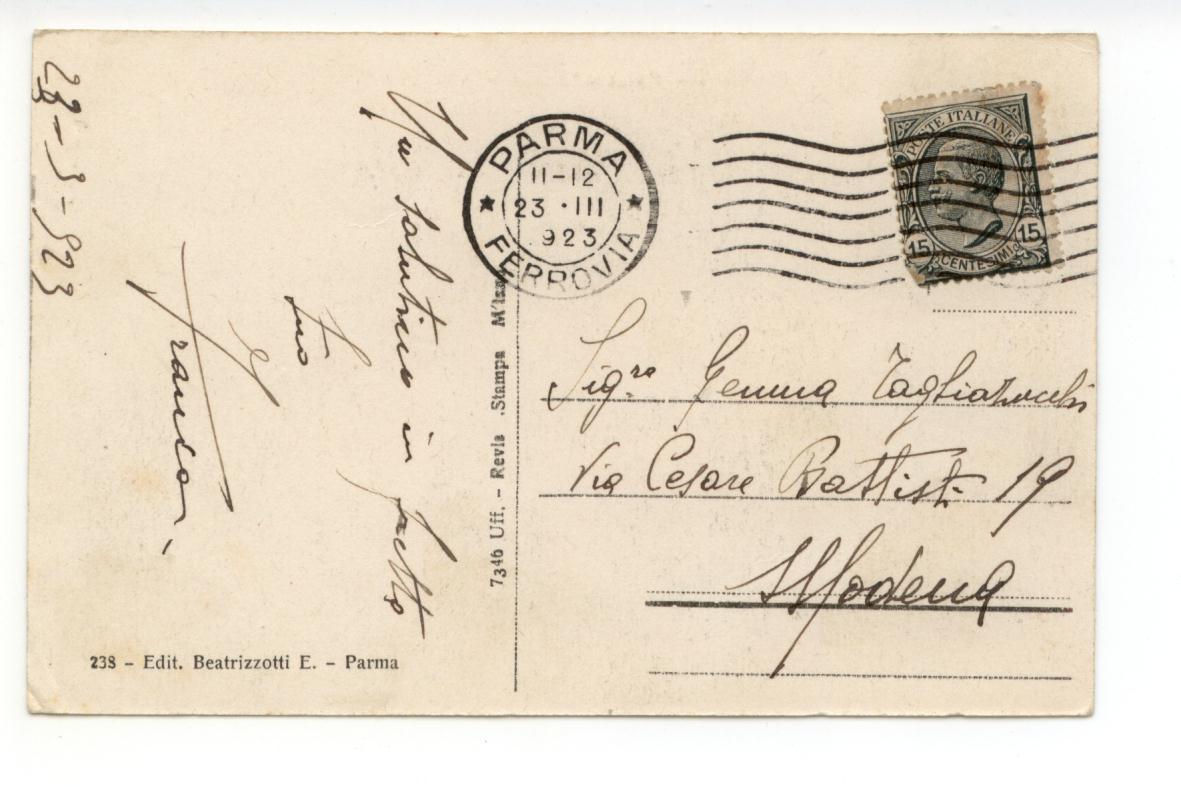 23-3-923
Un salutino in fretta
tuo
Franco
PARMA
11-12
23 · III
923
FERROVIA
POSTE ITALIANE
15 15
CENTESIMI
Sig.ra Gemma Tagliazucchi
Via Cesare Battisti 19
Modena
7346 Uff. - Revis .Stampa
238 - Edit. Beatrizzotti E. - Parma